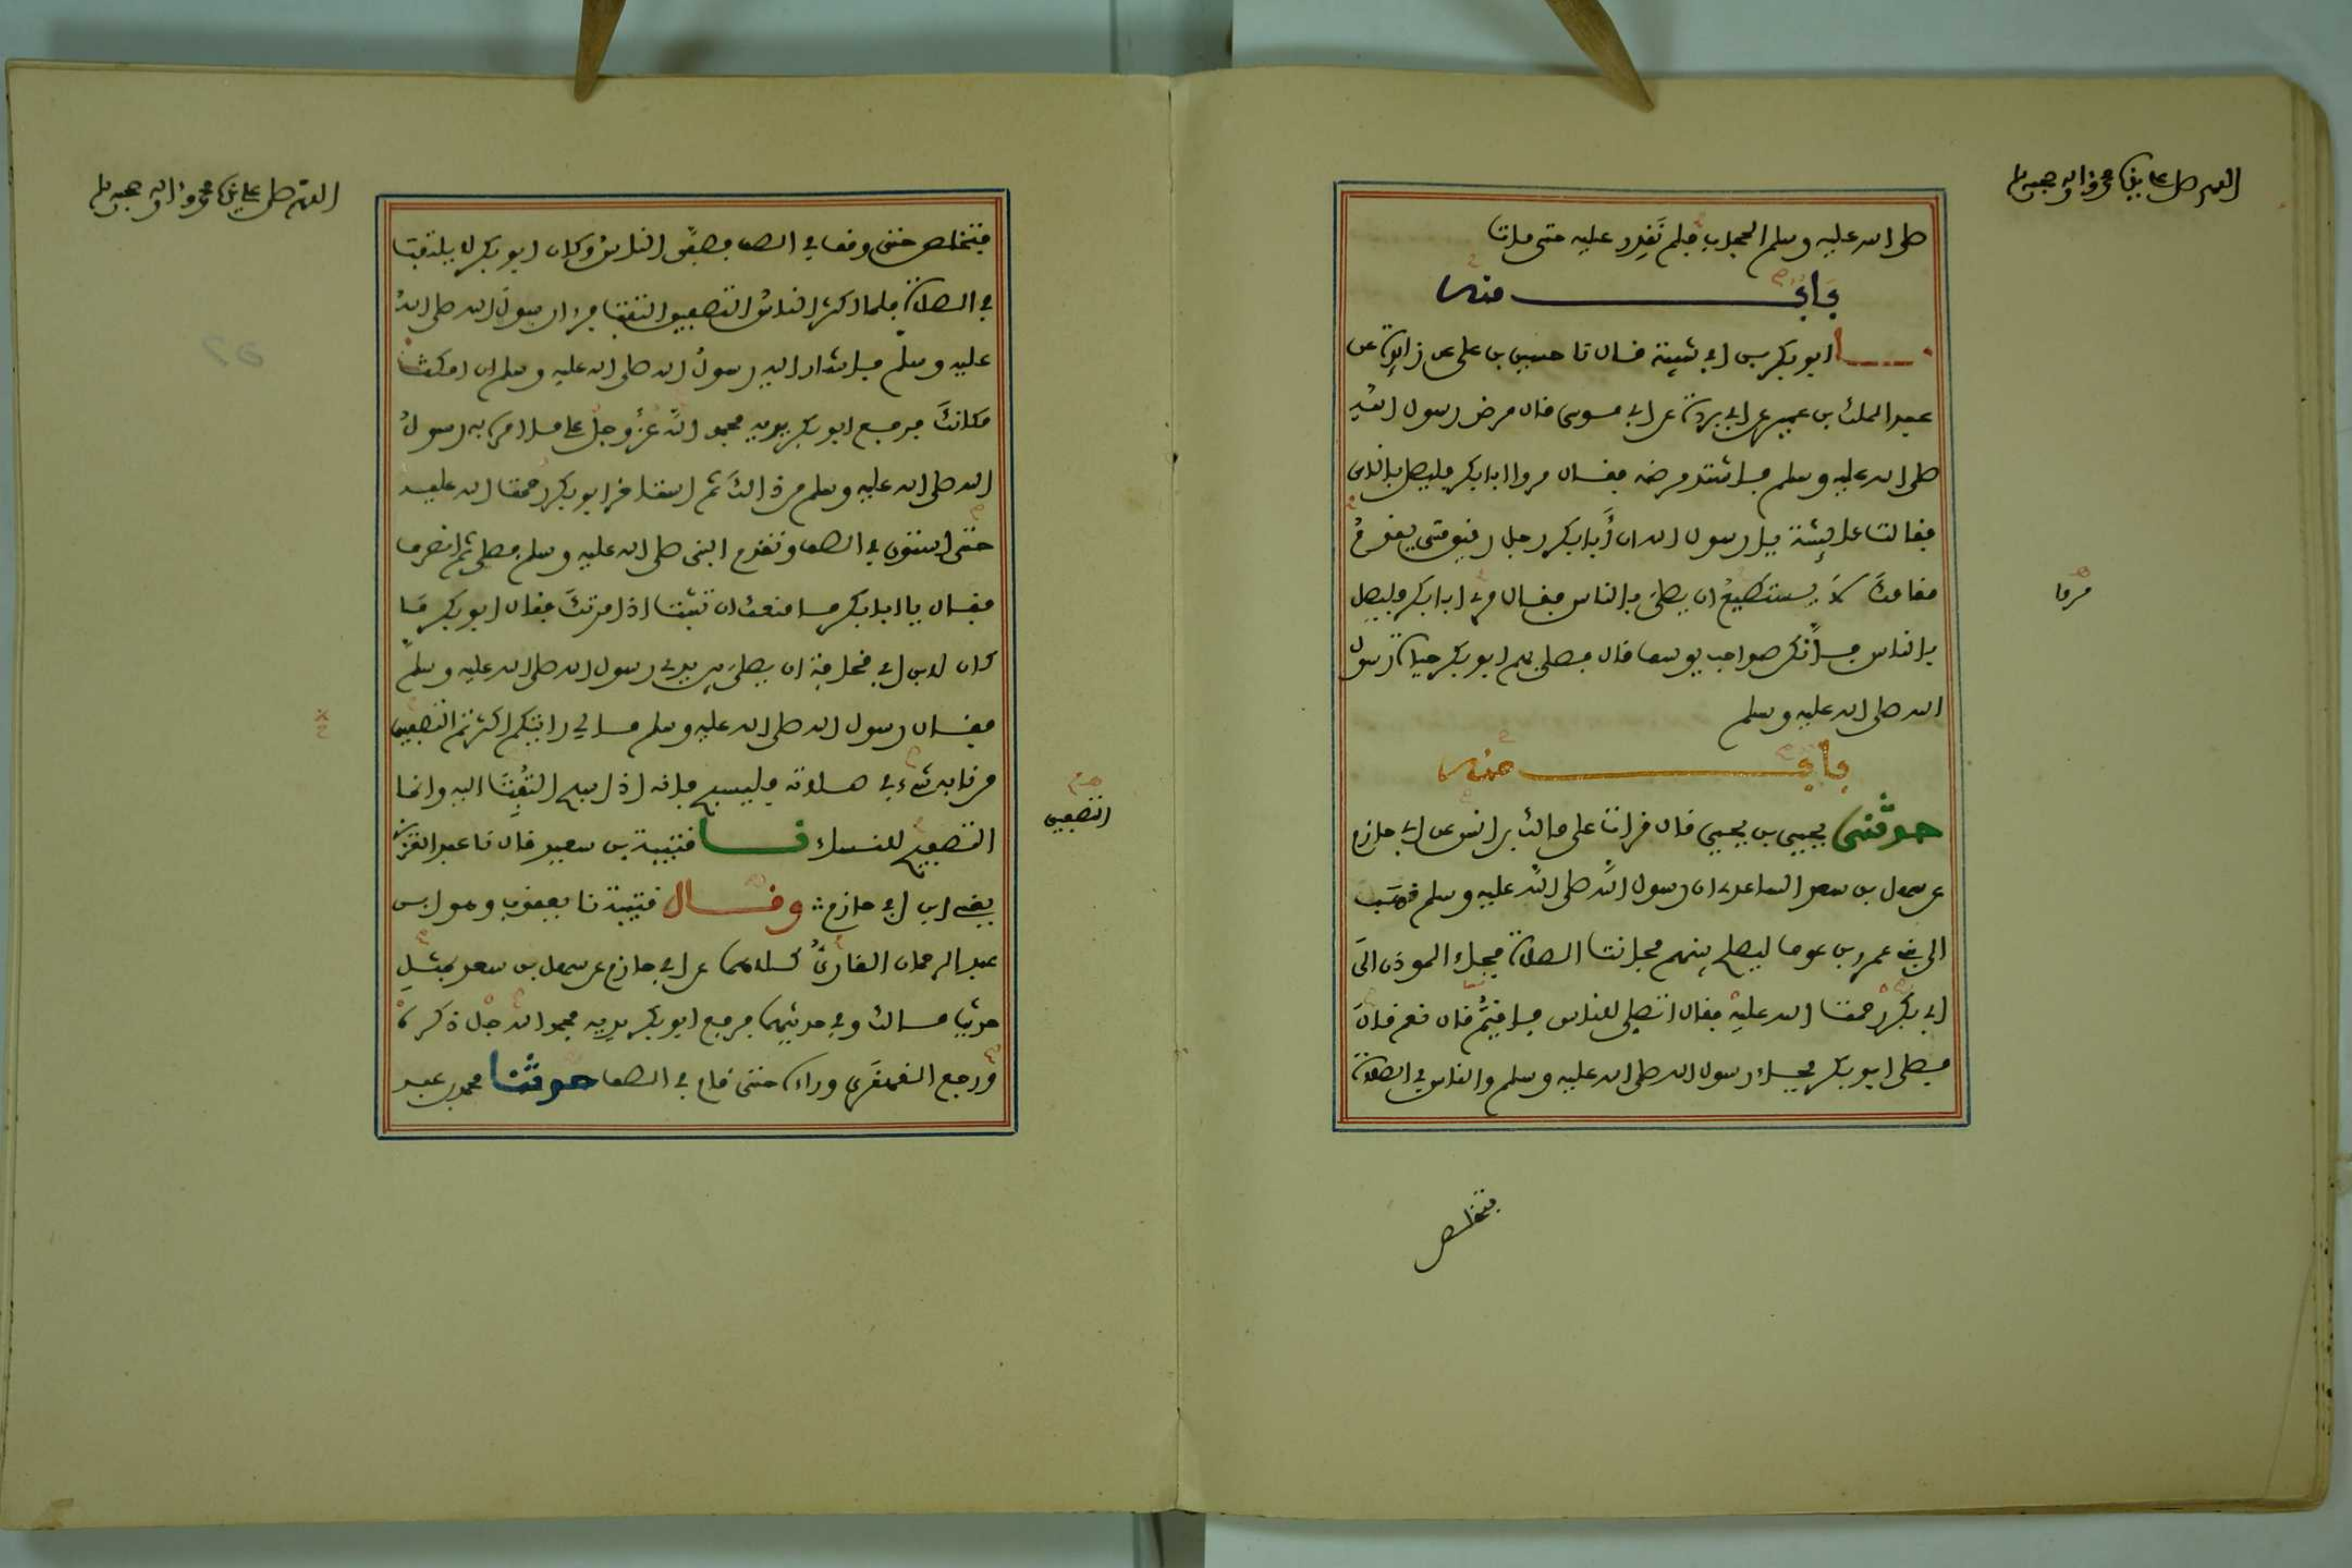 اللهم صل على نبينا محمد واله وصحبه وسلم
صلى الله عليه وسلم الحجاب فلم نقدر عليه حتى مات
باب منه
ابو بكر بن ابي شيبة قال نا حسين بن علي عن زايدة عن
عبد الملك بن عمير عن ابي بردة عن ابي موسى قال مرض رسول الله
صلى الله عليه وسلم فاشتد مرضه فقال مروا ابا بكر فليصل بالناس
فقالت عايشة يا رسول الله ان أبا بكر رجل رفيق متى يقم
مقامك لا يستطيع ان يصلي بالناس فقال مري ابا بكر فليصل
مروا
بالناس فانكن صواحب يوسف قال فصلى بهم ابو بكر حياة رسول
الله صلى الله عليه وسلم
باب منه
حدثني يحيى بن يحيى قال قرات على مالك بن انس عن ابي حازم
عن سهل بن سعد الساعدي ان رسول الله صلى الله عليه وسلم ذهب
الى بني عمرو بن عوف ليصلح بينهم فحانت الصلاة فجاء الموذن الى
ابي بكر رحمت الله عليه فقال اتصلي للناس فاقيم قال نعم قال
فصلى ابو بكر فجاء رسول الله صلى الله عليه وسلم والناس في الصلاة
فتخلص
اللهم صل على نبينا محمد واله وصحبه وسلم
فتخلص حتى وقف في الصف فصفق الناس وكان ابو بكر لا يلتفت
في الصلاة فلما اكثر الناس التصفيق التفت فراى رسول الله صلى الله
عليه وسلم فاشار اليه رسول الله صلى الله عليه وسلم ان امكث
مكانك فرفع ابو بكر يديه فحمد الله عز وجل على ما امره به رسول
الله صلى الله عليه وسلم من ذالك ثم استاخر ابو بكر رحمت الله عليه
حتى استوى في الصف وتقدم النبي صلى الله عليه وسلم فصلى ثم انصرف
فقال يا ابا بكر ما منعك ان تثبت اذ امرتك فقال ابو بكر ما
كان لابن ابي قحافة ان يصلي بين يدي رسول الله صلى الله عليه وسلم
فقال رسول الله صلى الله عليه وسلم ما لي رايتكم اكثرتم التصفيق
من نابه شيء في صلاته فليسبح فانه اذا سبح التفت اليه وانما
التصفيح للنساء نا قتيبة بن سعيد قال نا عبد العزيز
التصفيق
يعني ابن ابي حازم وقال قتيبة نا يعقوب وهو ابن
عبد الرحمان القاري كلاهما عن ابي حازم عن سهل بن سعد بمثل
حديث مالك وفي حديثهما فرفع ابو بكر يديه فحمد الله جل ذكره
ورجع القهقرى وراءه حتى قام في الصف حدثنا محمد بن عبد